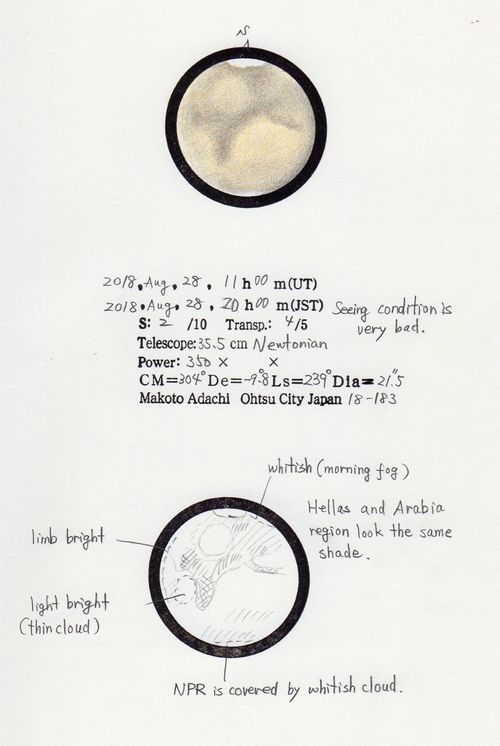 S
2018, Aug, 28, 11 h 00 m(UT)
2018, Aug, 28, 20 h 00 m(JST)
Seeing condition is
very bad.
S: 2 /10 Transp.: 4/5
Telescope: 35.5 cm Newtonian
Power: 350 × ×
CM=304° De=-9.8° Ls=239° Dia=21.5"
Makoto Adachi Ohtsu City Japan 18-183
whitish (morning fog)
Hellas and Arabia
region look the same
shade.
limb bright
light bright
(thin cloud)
NPR is covered by whitish cloud.